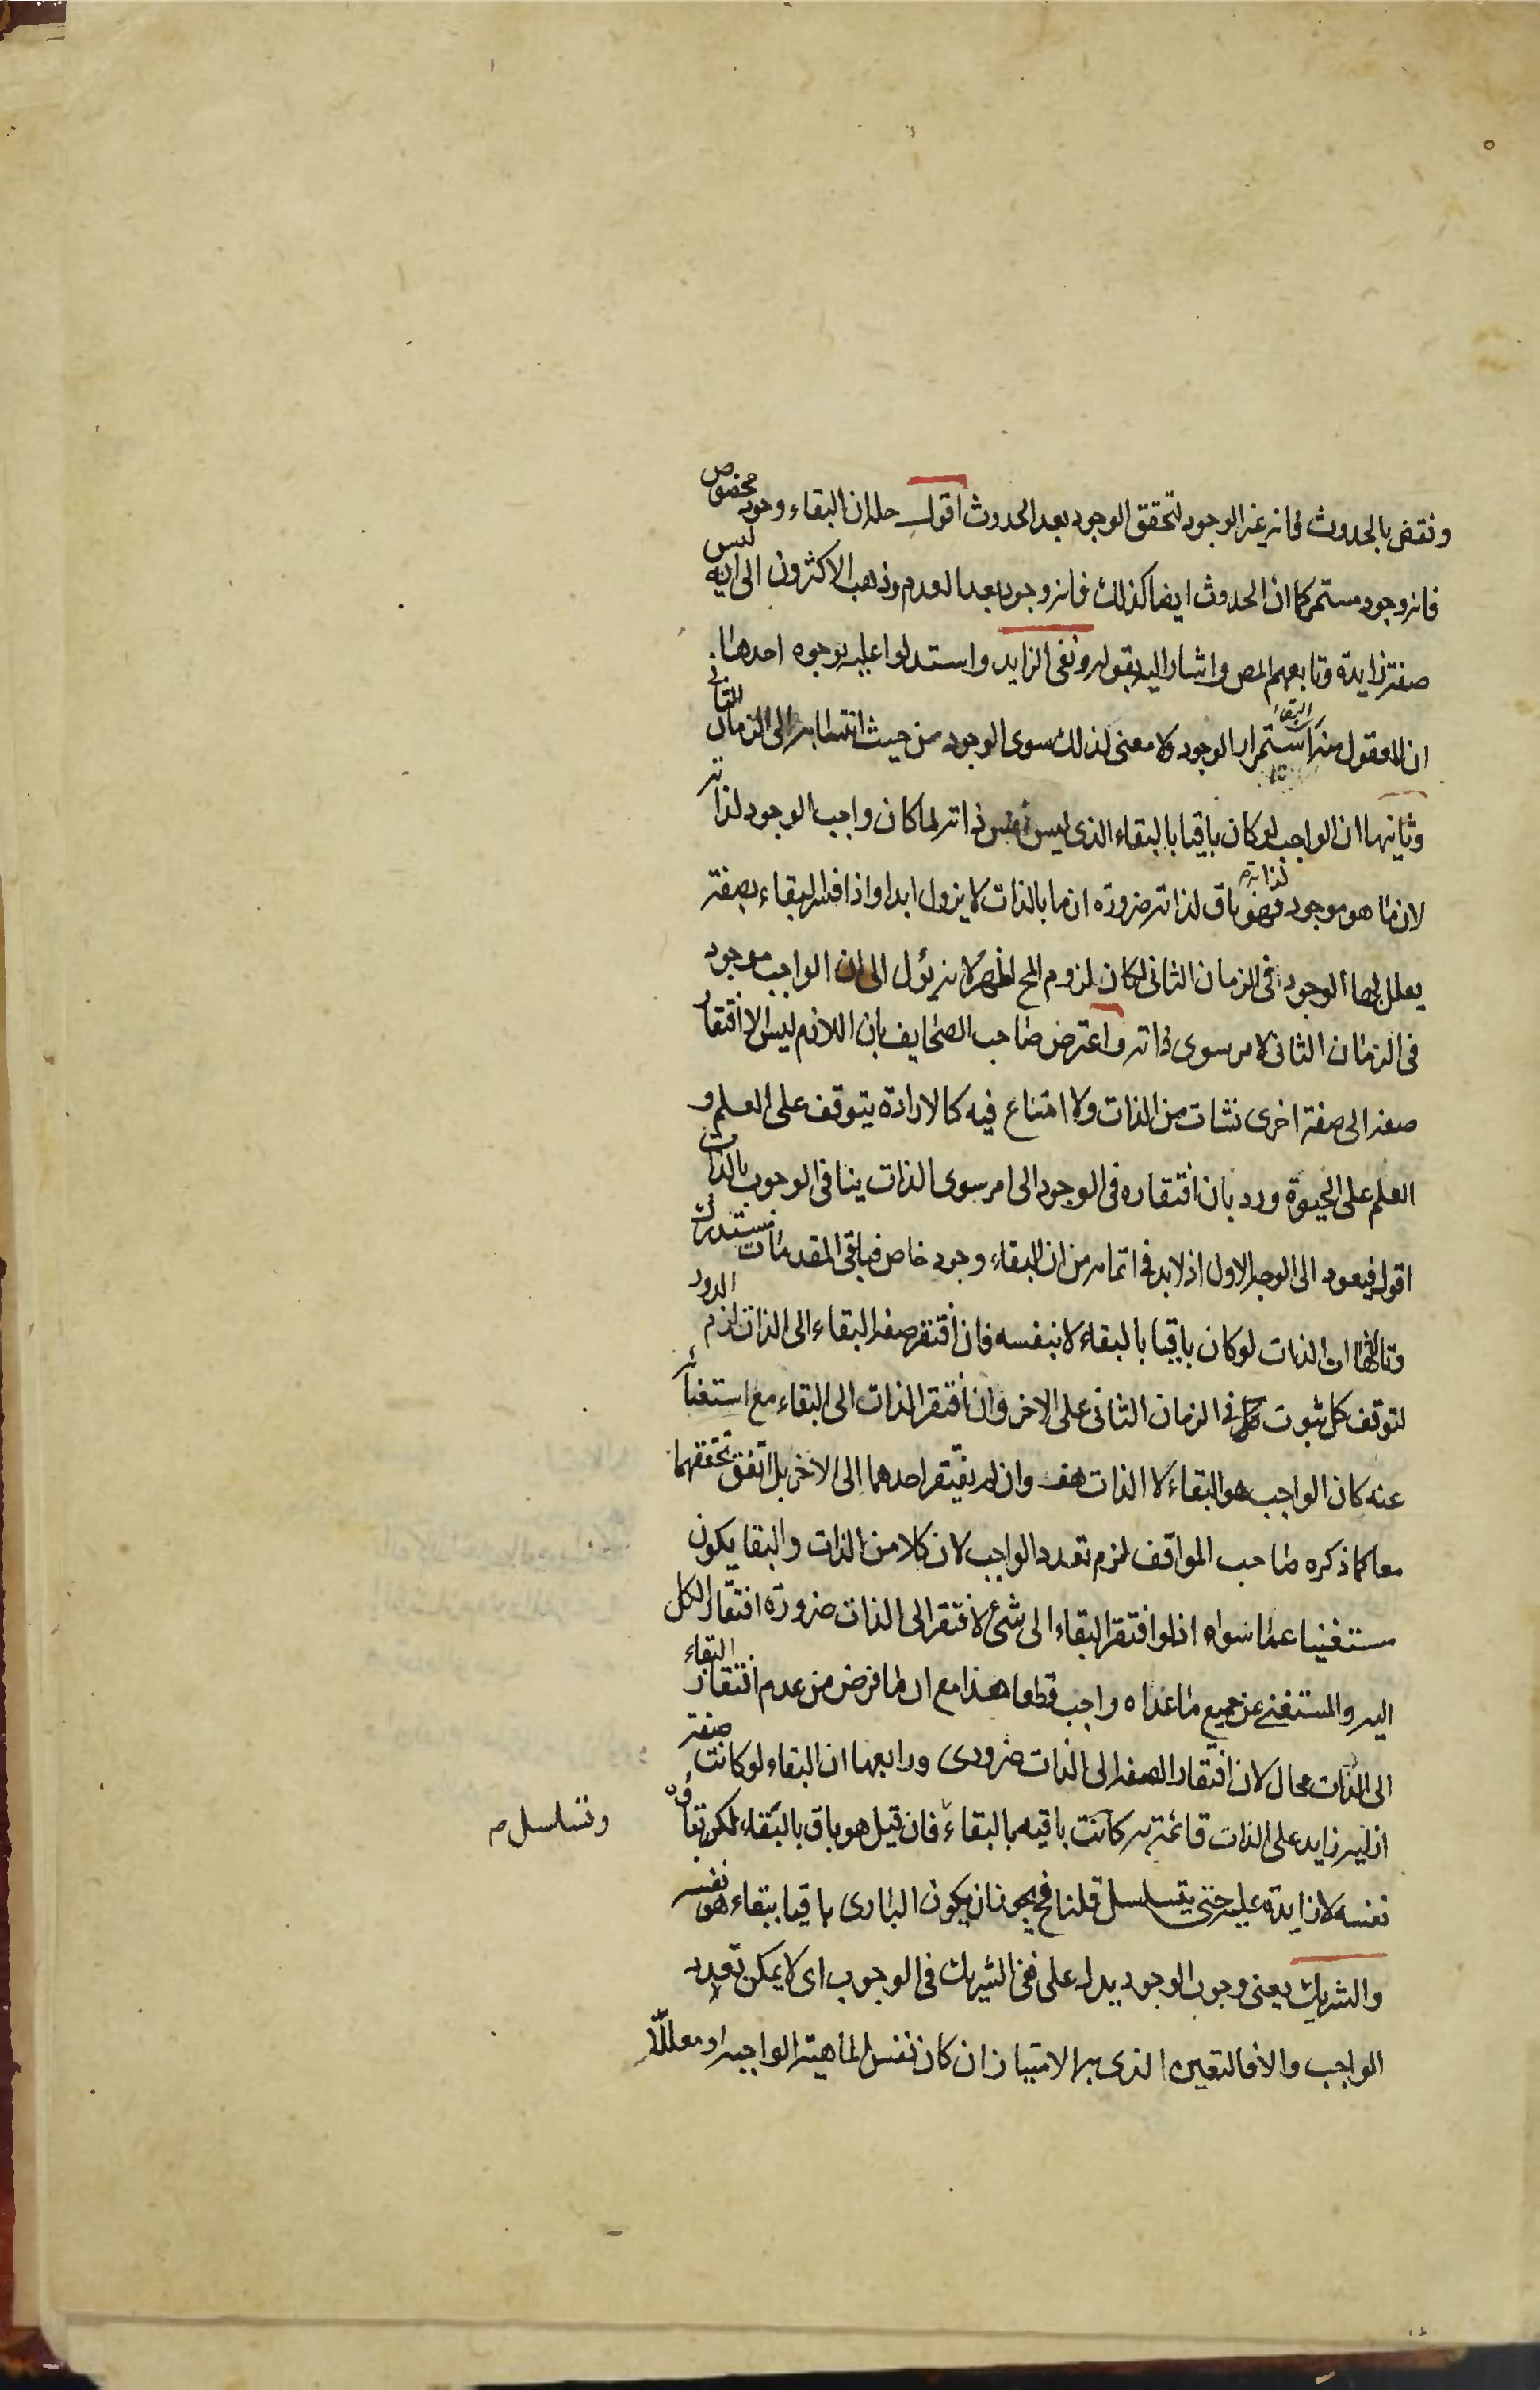 ونقض بالحدوث فانه غير الوجود لتحقق الوجود بعد الحدوث اقول حله ان البقاء وجود مخصوص
فانه وجود مستمر كما ان الحدوث ايضا كذلك فانه وجود بعد العدم وذهب الاكثرون الى انه ليس
صفة زايدة وتابعهم المص واشار اليه بقوله ونفى الزايد واستدلوا عليه بوجوه احدها
ان المعقول منه البقاء استمرار الوجود ولا معنى لذلك سوى الوجود من حيث انتسابه الى الزمان الثانى
وثانيها ان الواجب لو كان باقيا بالبقاء الذى ليس نفس ذاته لما كان واجب الوجود لذاته
لان ما هو موجود لذاته فهو باق لذاته ضرورة ان ما بالذات لا يزول ابدا واذا فسر البقاء بصفة
يعلل بها الوجود فى الزمان الثانى لكان لزوم المح اظهر لانه يؤل الى ان الواجب موجود
فى الزمان الثانى لامر سوى ذاته واعترض صاحب الصحايف بان اللازم ليس الا افتقار
صفة الى صفة اخرى نشات من الذات ولا امتناع فيه كالارادة يتوقف على العلم و
العلم على الحيوة ورد بان افتقاره فى الوجود الى امر سوى الذات ينافى الوجوب بالذات
اقول فيعود الى الوجه الاول اذ لابد فى اتمامه من ان البقاء وجود خاص فباقى المقدمات مستدرك
وثالثها ان الذات لو كان باقيا بالبقاء لا بنفسه فان افتقر صفة البقاء الى الذات لزم الدور
لتوقف كل ثبوت كل فى الزمان الثانى على الاخر وان افتقر الذات الى البقاء مع استغنائه
عنه كان الواجب هو البقاء لا الذات هف وان لم يفتقر احدهما الى الاخر بل اتفق تحققهما
معا كما ذكره صاحب المواقف لزم تعدد الواجب لان كلا من الذات والبقا يكون
مستغنيا عما سواه اذ لو افتقر البقاء الى شئ لافتقر الى الذات ضرورة افتقار الكل
اليه والمستغنى عن جميع ما عداه واجب قطعا هذا مع ان ما فرض من عدم افتقار البقاء
الى الذات محال لان افتقار الصفة الى الذات ضرورى ورابعها ان البقاء لو كانت صفة
ازلية زايد على الذات قائمة به كانت باقيه بالبقاء فان قيل هو باق بالبقاء لكن بقاؤه
وتسلسل صح
نفسه لا زايدة عليه حتى يتسلسل قلنا فح يجوز ان يكون البارى باقيا ببقاء هو نفسه
والشريك يعنى وجوب الوجود يدل على نفى الشريك فى الوجوب اى لا يمكن تعدد
الواجب والا فالتعين الذى به الامتياز ان كان نفس الماهية الواجبه او معللا